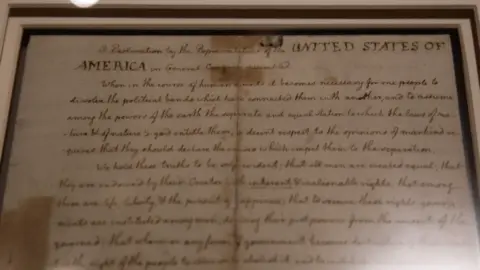 A Declaration by the Representatives of the UNITED STATES OF
AMERICA in General Congress assembled
When in the course of human events it becomes necessary for one people to
dissolve the political bands which have connected them with another, and to assume
among the powers of the earth the separate and equal station to which the laws of na-
ture & of nature's god entitle them, a decent respect to the opinions of mankind re-
quires that they should declare the causes which impel them to the separation.
We hold these truths to be self evident, that all men are created equal, that
they are endowed by their Creator with inherent & inalienable rights, that among
these are life, liberty, & the pursuit of happiness; that to secure these rights, govern-
ments are instituted among men, deriving their just powers from the consent of the
governed; that whenever any form of government becomes destructive of these
the right of the people to alter or to abolish it, and to institute